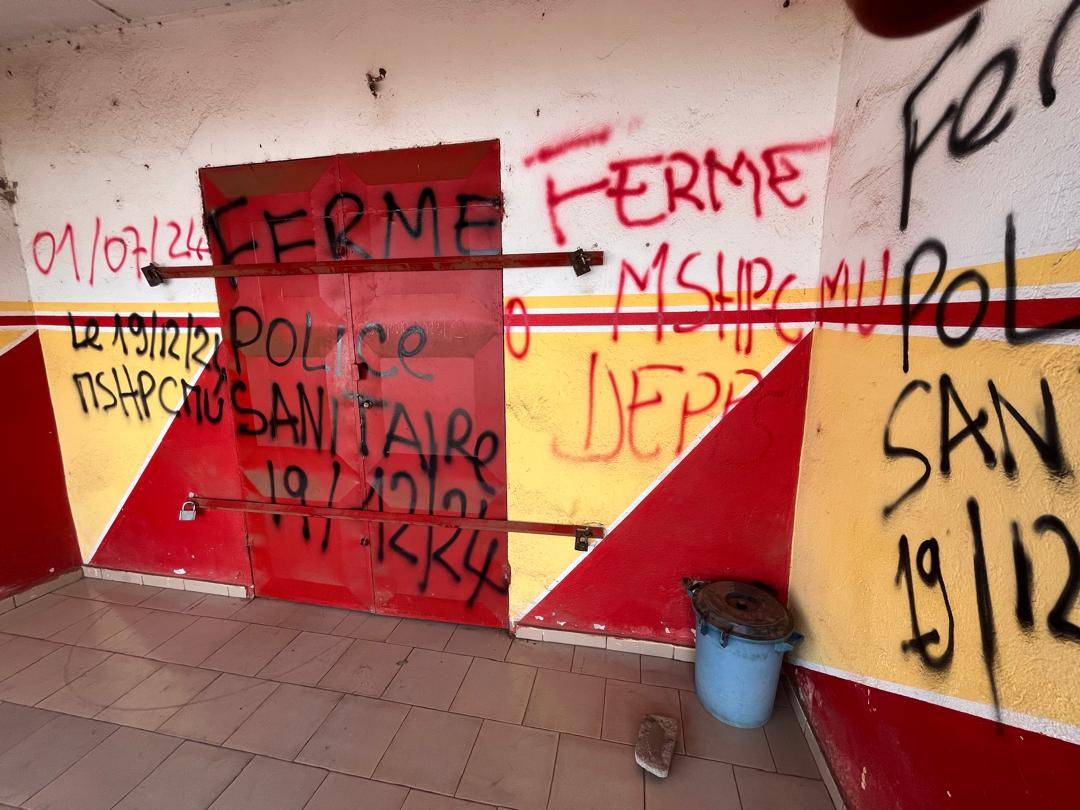 01/07/24
Le 19/12/24
MSHPCMU
FERME
POLICe
SANITAIRe
19/12/24
FERME
MSHPCMU
DEPPS
Fer
POL
SAN
19/12